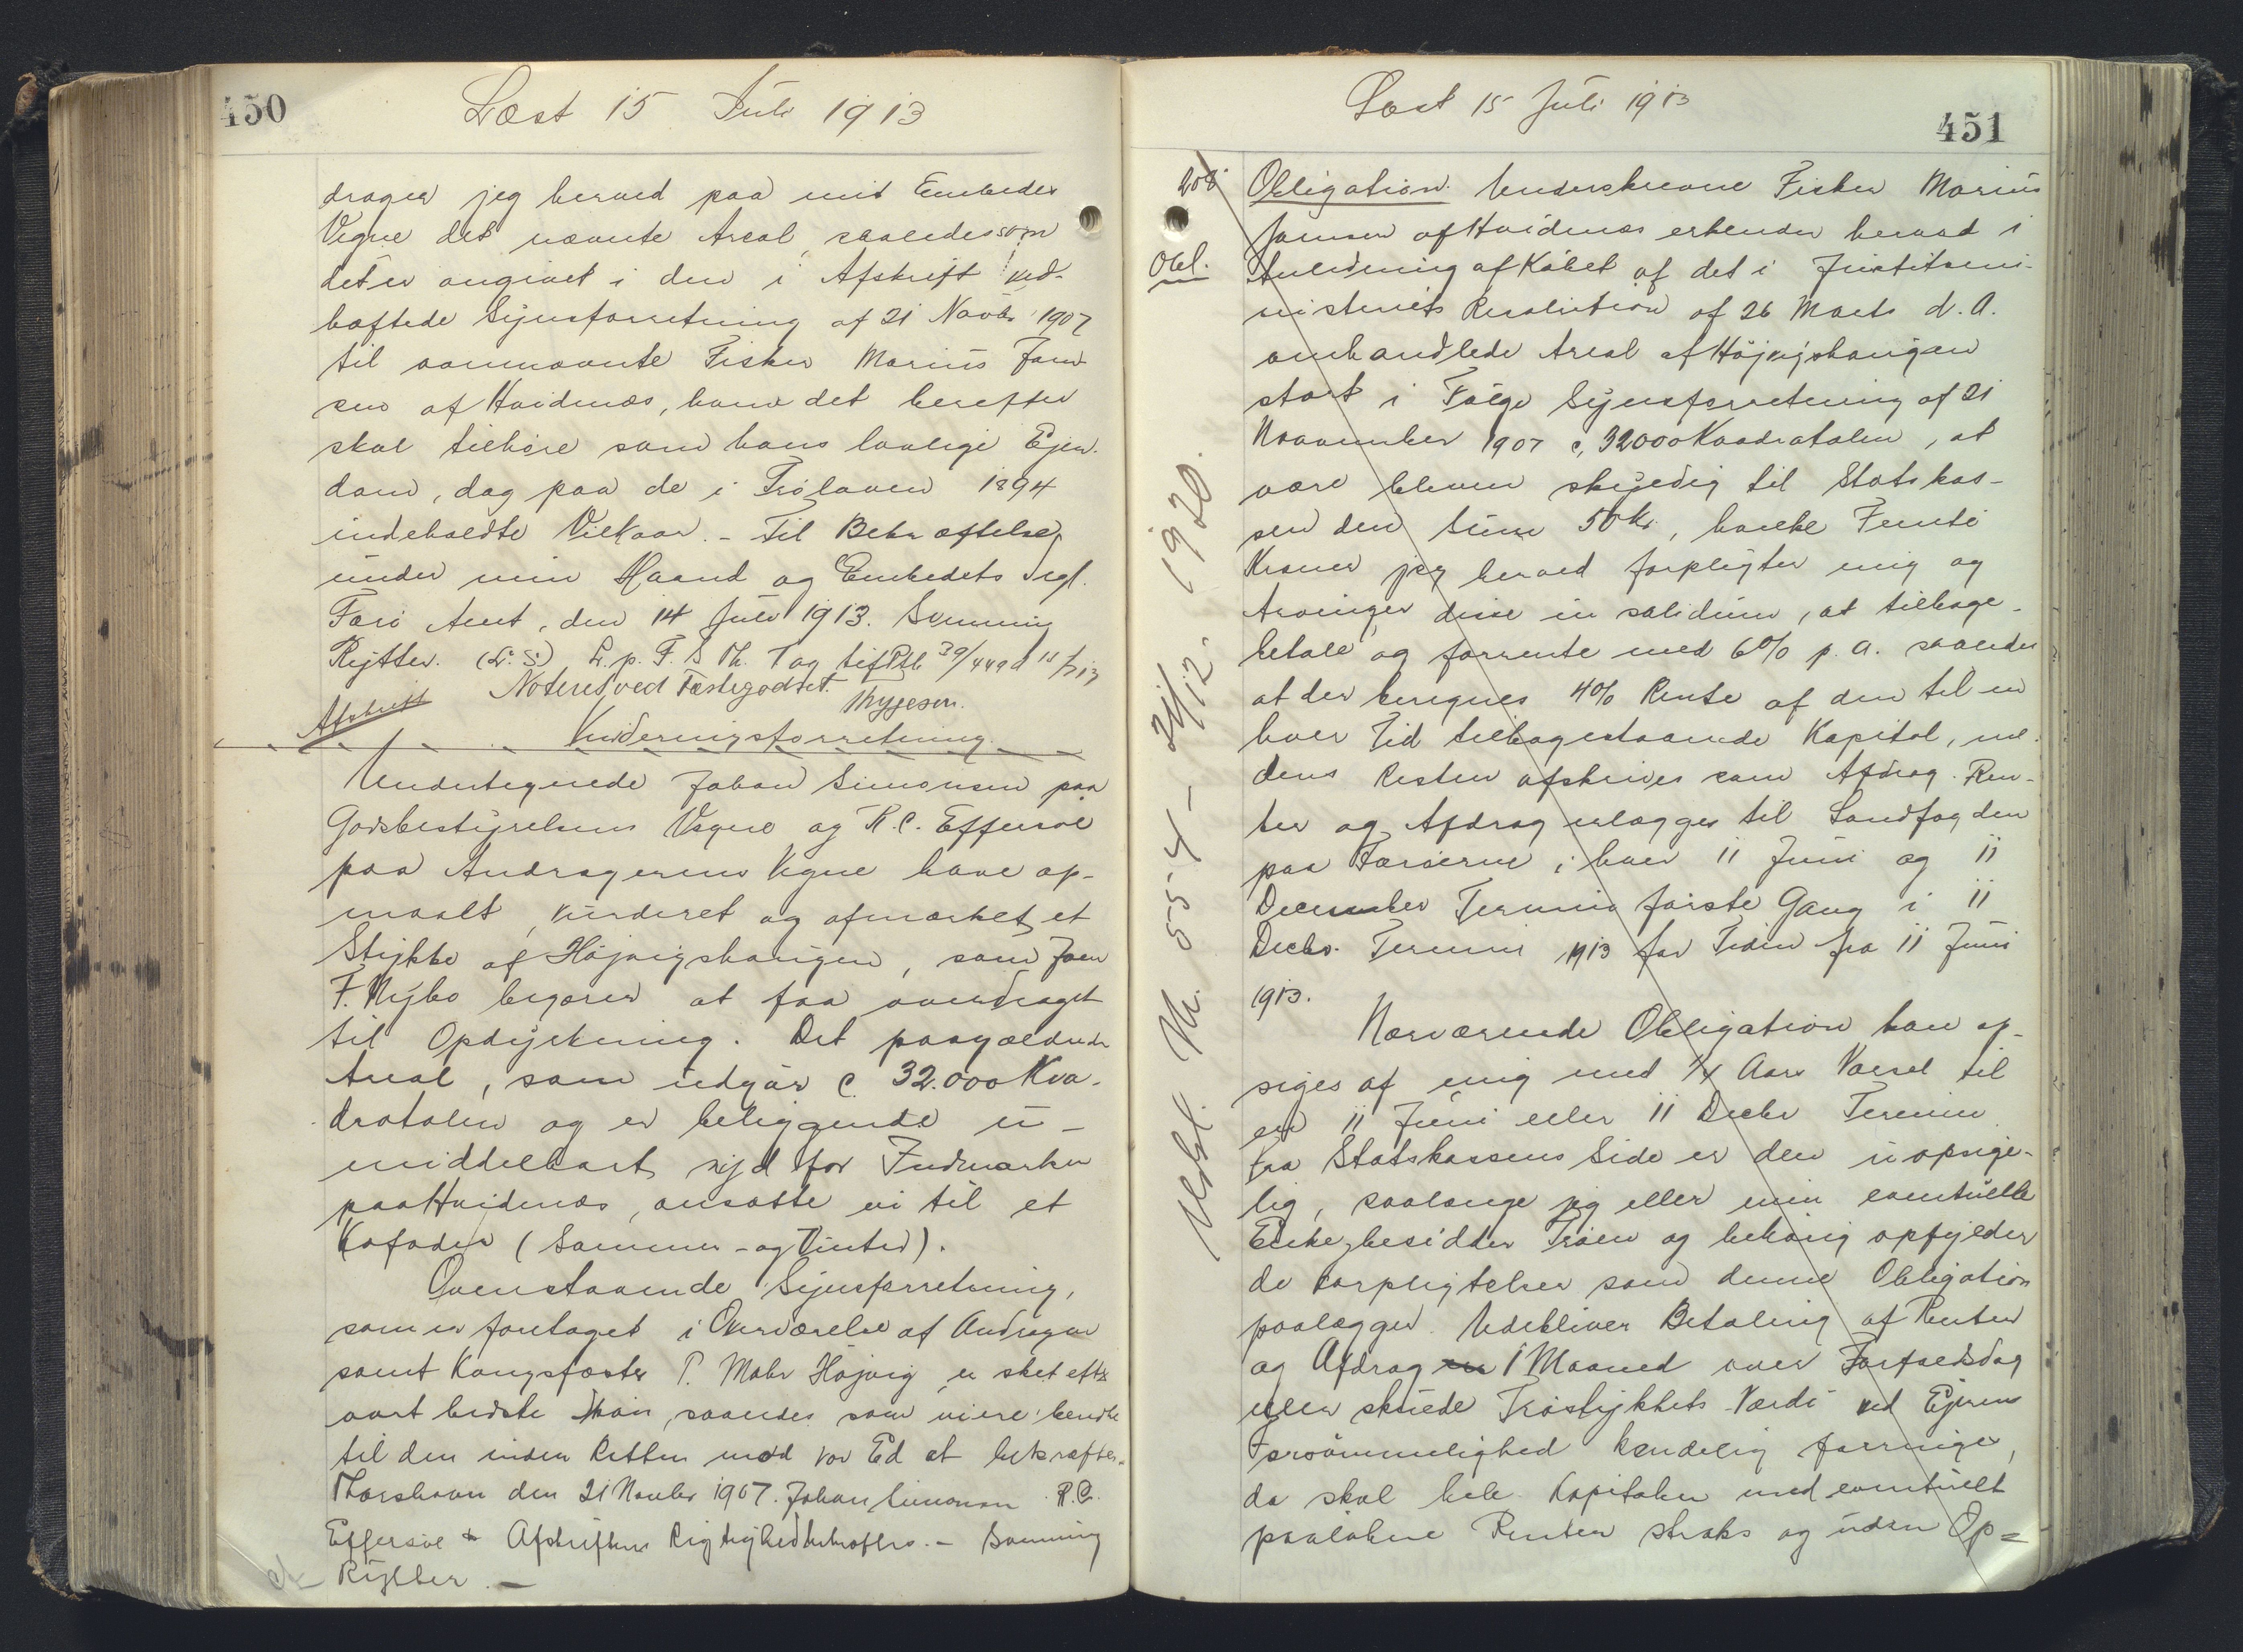 450
Læst 15 Juli 1913
drager jeg herved paa mit Embedes
Vegne det nævnte Areal, saaledes som
det er angivet i den i Afskrift ved-
hæftede Synsforretning af 21 Novbr 1907
til ovennævnte Fisker Marius Joen-
sen af Hvidenæs, hvem det herefter
skal tilhøre som hans lovlige Ejen-
dom, dog paa de i Trøloven 1894
indeholdte Vilkaar. - Til Bekræftelse
under min Haand og Embedets Segl.
Færø Amt, den 14 Juli 1913. Svenning
Rytter. (L. S.) L. p. F. S Th. Tag til Ptb 39/449 d 15/7 13
Noteres ved Fæstegodset. Thygesen.
Afskrift
Vurderingsforretning
Undertegnede Johan Simonsen paa
Godsbestyrelsens Vegne og R. C. Effersøe
paa Andragerens Vegne have op-
maalt, vurderet og afmærket et
Stykke af Højvigshaugen, som Joen
F. Nybo begærer at faa overdraget
til Opdyrkning. Det paagældende
Areal, som udgør c. 32.000 Kva-
dratalen og er beliggende u-
middelbart syd for Indmarken
paa Hvidenæs, ansatte vi til et
Kofoder (Sommer- og Vinter).
Ovenstaaende Synsforretning,
som er foretaget i Overværelse af Andrager
samt Kongsfæster P. Mohr Højvig er sket efter
vort bedste Skøn, saaledes som vi ere beredte
til den inden Retten med vor Ed at bekræfte.
Thorshavn den 21 Novbr 1907. Johan Simonsen R. C.
Effersøe Afskriftens Rigtighed bekræftes. - Svenning
Rytter. -
Læst 15 Juli 1913
451
208
Obl.
Udsl. Nr. 554 - 21/12 - 1920.
Obligation. Underskrevne Fisker Marius
Joensen af Hvidenæs erkender herved i
Anledning af Købet af det i Justitsmi-
nisteriets Resolution af 26 Marts d. A.
omhandlede Areal af Højvigshaugen
stort i Følge Synsforretning af 21
November 1907 c. 32000 Kvadratalen, at
være bleven skyldig til Statskas-
sen den Sum 50 Kr., hvilke Femti
Kroner jeg herved forpligter mig og
Arvinger disse in solidum, at tilbage-
betale og forrente med 6% p. a. saaledes
at der beregnes 4% Rente af den til en
hver Tid tilbagestaaende Kapital, me-
dens Resten afskrives som Afdrag. Ren-
ter og Afdrag erlægges til Landfogden
paa Færøerne i hver 11 Juni og 11
December Termin første Gang i 11
Decbr. Termin 1913 for Tiden fra 11 Juni
1913.
Nærværende Obligation kan op-
siges af mig med 1/4 Aars Varsel til
en 11 Juni eller 11 Decbr Termin
Fra Statskassens Side er den uopsige-
lig, saalænge jeg eller min eventuelle
Enke besidder Trøen og behørig opfylder
de Forpligtelser som denne Obligation
paalægger. Udebliver Betaling af Renter
og Afdrag 1 Maaned over Forfaldsdag
eller skulde Trøstykkets Værdi ved Ejerens
Forsømmelighed kendelig forringes,
da skal hele Kapitalen med eventuelt
paaløbne Renter straks og uden Op=